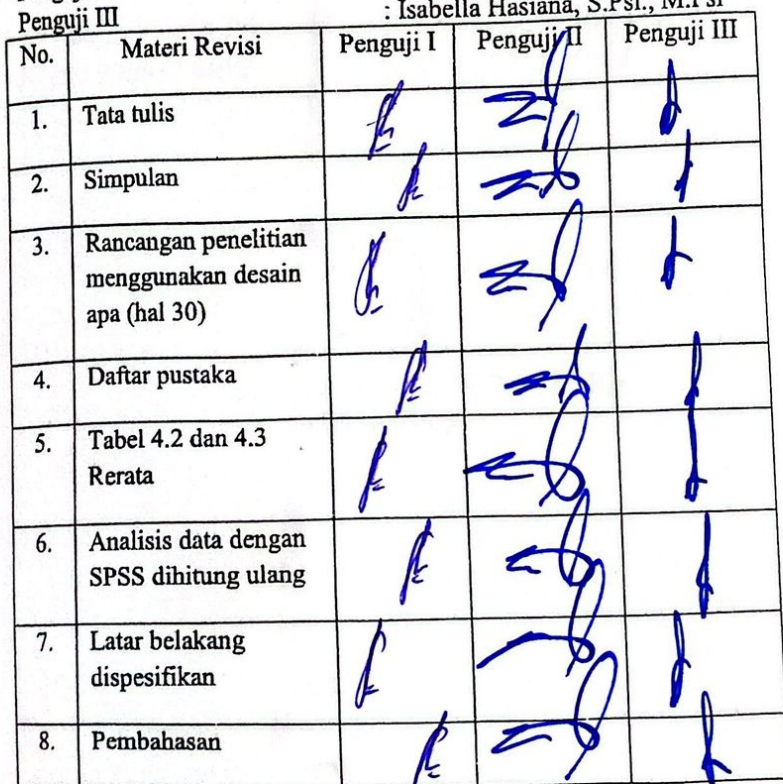 Penguji III : Isabella Hasiana, S.Psi., M.Psi
No. Materi Revisi Penguji I Penguji II Penguji III
1. Tata tulis
2. Simpulan
3. Rancangan penelitian
menggunakan desain
apa (hal 30)
4. Daftar pustaka
5. Tabel 4.2 dan 4.3
Rerata
6. Analisis data dengan
SPSS dihitung ulang
7. Latar belakang
dispesifikan
8. Pembahasan